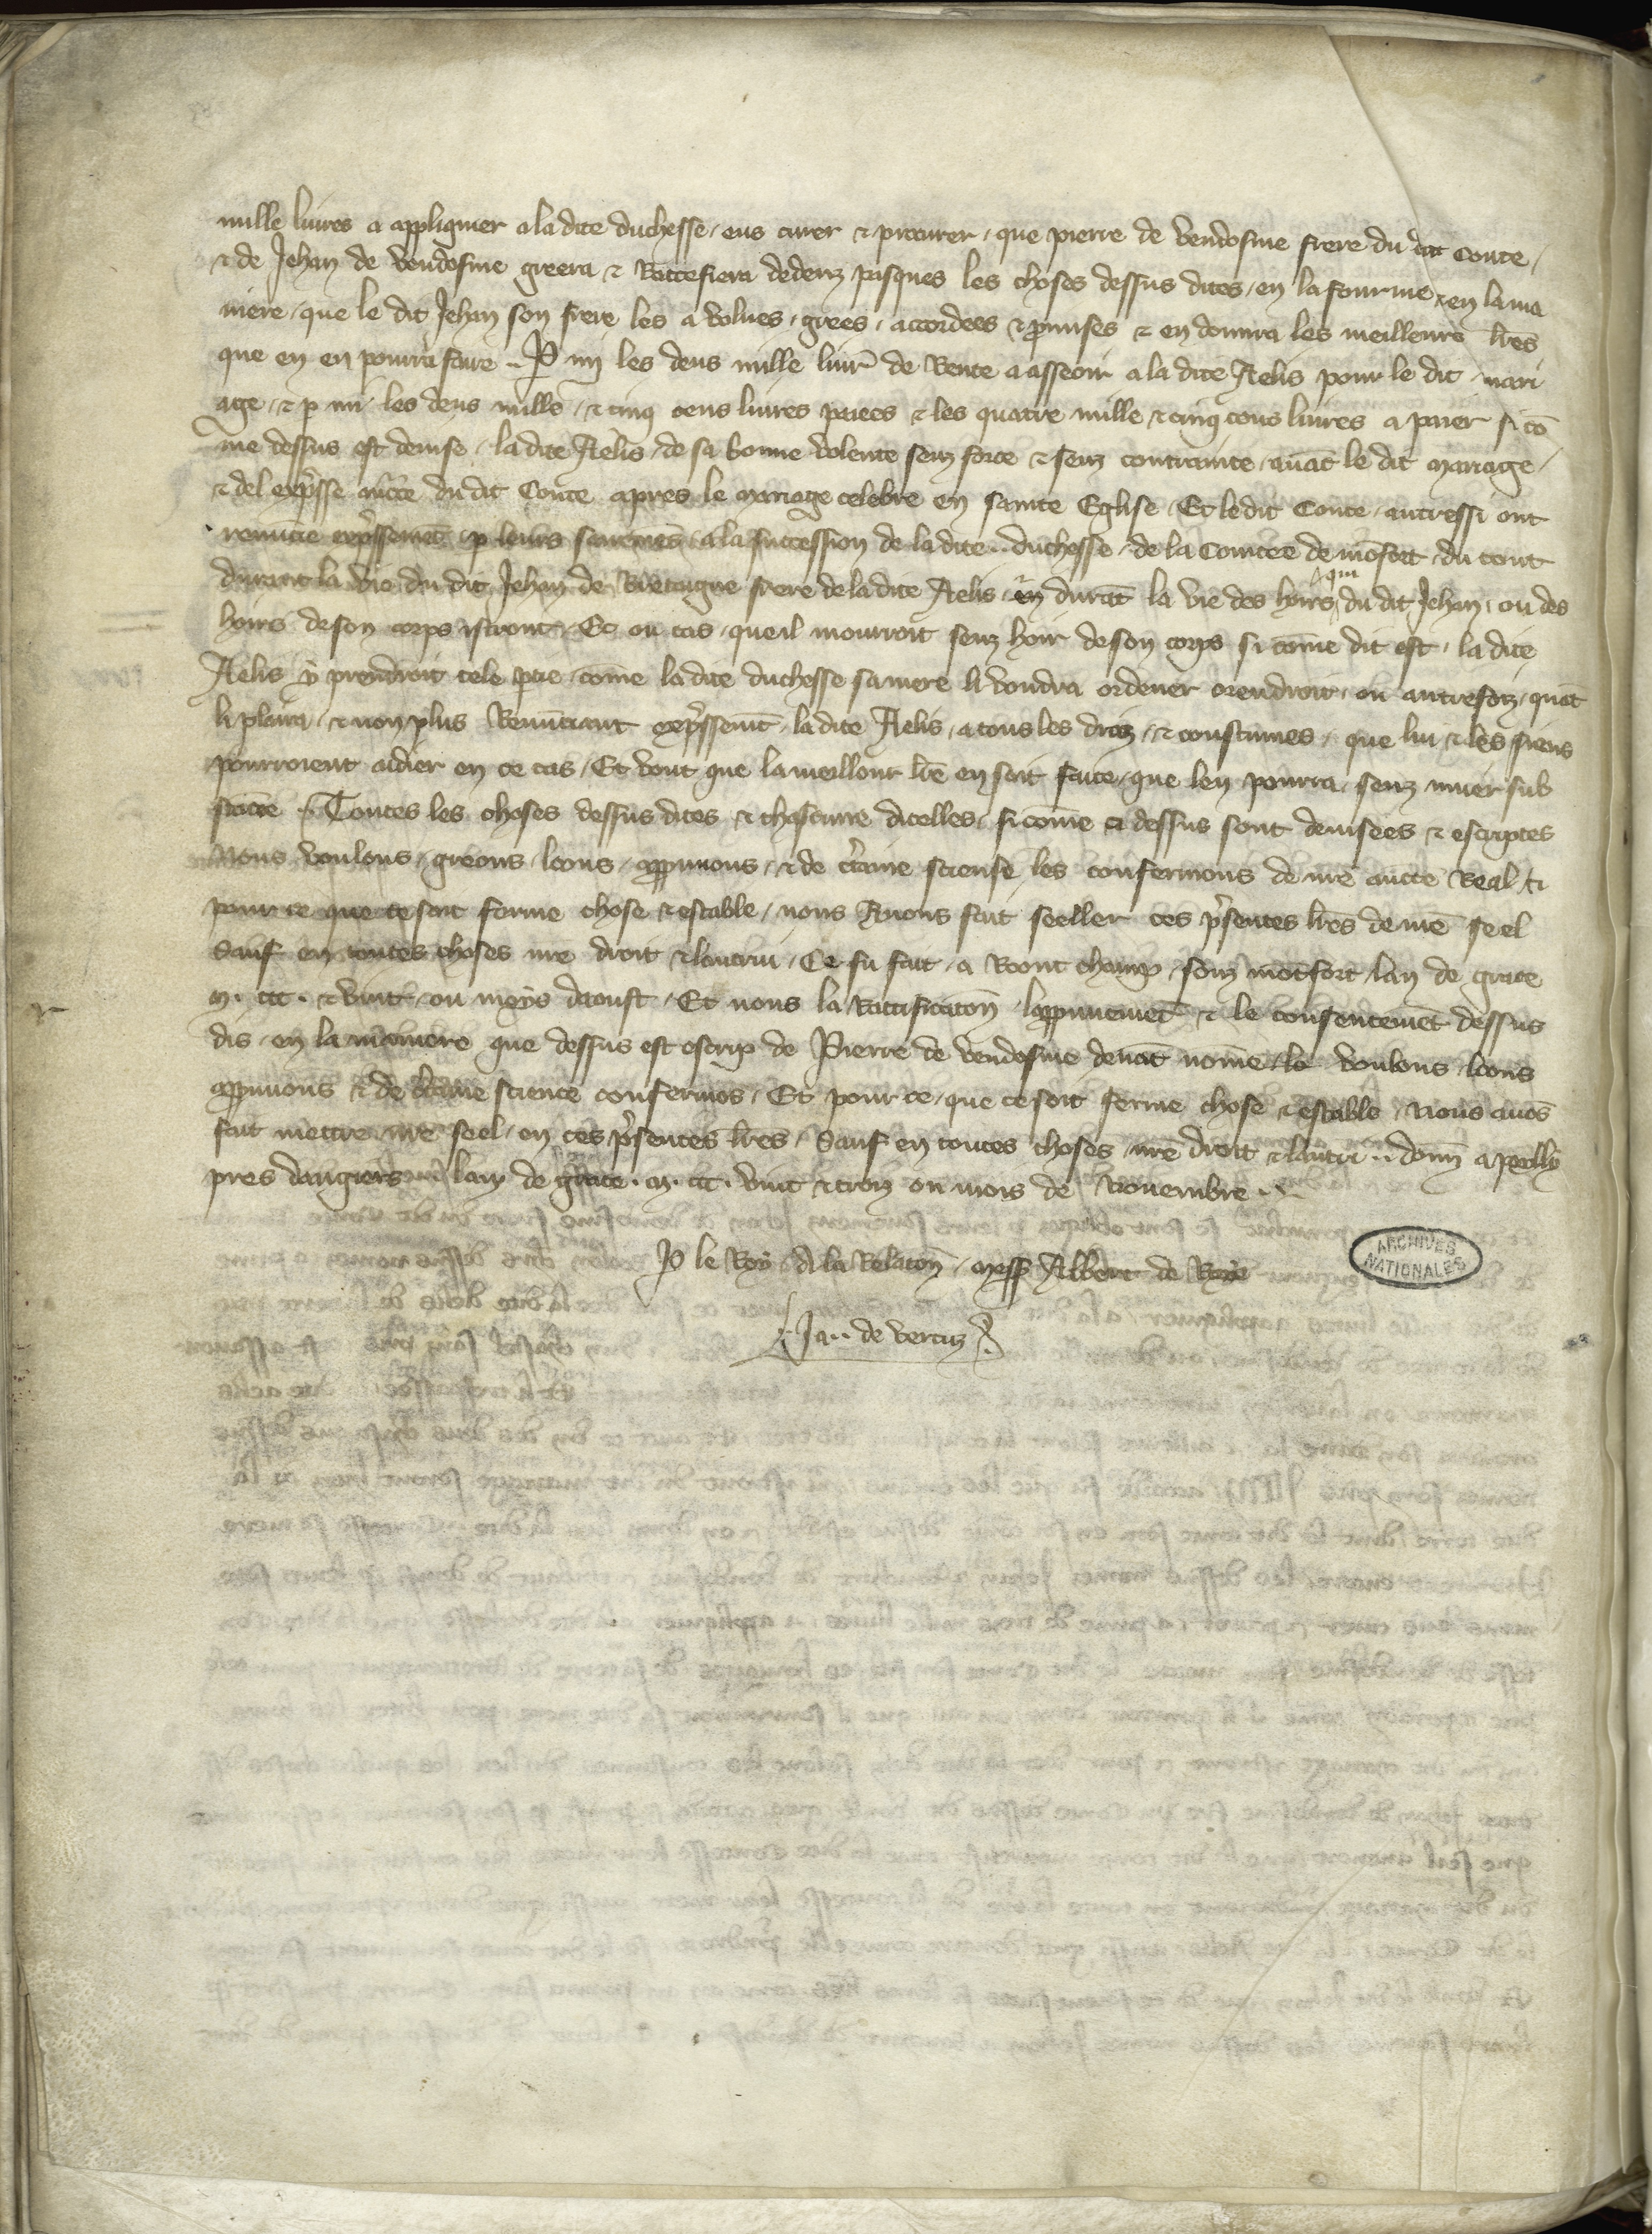 mille liures a appliquer a la dite duchesse, eus curer & procurer, que pierre de vendosme frere du dit conte,
& de Jehan de vendosme greera & Rattefiera dedenz pasques les choses dessus dites, en la fourme, en la ma
niere, que le dit Jehan son frere les a volues, grees, accordees & pmises & en donrra les meilleurs lres
que en en pourra faire .. P mi les deus mille liur de Rente a asseoir a la dite Aelis pour le dit mari
age, & p mi les deus mille, & cinq cens liures paiees & les quatre mille, & cinq cens liures a paier si co
me dessus est deuise, la dite Aelis, de sa bonne volente senz force & senz contrainte, auat le dit mariage,
& del expsse aucte du dit Conte apres le mariage celebre en sainte Eglise, Et le dit Conte autressi ont
renucie expssemet p leurs seremes a la succession de la dite .. duchesse, de la Contee de mofort du tout
durant la vie du dit Jehan de Bretaigne frere de la dite Aelis, durat la vie des hoirs du dit Jehan, ou des
qui
hoirs de son corps istront, Et ou cas, que il mourroit senz hoir de son corps si come dit est, la dite
Aelis y prendroit tele ptie, come la dite duchesse sa mere li voudra ordener orendroit, ou autrefoiz, quat
li plaira, & non plus Renuncant expssemt, la dite Aelis, a tous les droiz, & coustumes, que lui & les siens
pourroient aidier en ce cas, Et vout que la meillour lre en soit faite, que len pourra, senz muer sub
stace .. Toutes les choses dessus dites & chascune dicelles, si come ci dessus sont deuisees & escriptes
Nous voulons, greons, loons, appuuons, & de ctaine sciense, les confermons de nre aucte Real, &
pour ce que ce soit ferme chose & estable, nous Auons fait seeller ces psentes lres de nre seel
Sauf en toutes choses nre droit & lautrui, Ce fu fait, a Roont champ, souz motfort lan de grace
m. ccc. & vint, ou moys daoust, Et nous la Rattificaton, lappuuemet & le consentemet dessus
dis, en la maniere que dessus est escrip de Pierre de vendosme deuat nome, le voulons, loons
appuuons & de ctaine science confermos, Et pour ce, que ce soit ferme chose & estable, Nous auos
fait mettre nre seel, en ces psentes lres, Sauf en toutes choses, nre droit & lautri .. donn a peilly
pres dangiers lan de grace . m. ccc. vint & troiz ou mois de Nouembre ..
P le Roy, A la Relaton, mess Albert de Roye
Ja .. de vertuz
ARCHIVES
NATIONALES